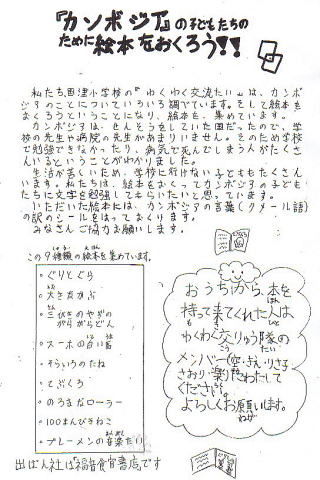 『カンボジア』の子どもたちの
ために絵本をおくろう!!
私たち西津小学校の『わくわく交流たい』は、カンボ
ジアのことについていろいろ調べています。そして絵本を
おくろうということになり、絵本を、集めています。
カンボジアは、せんそうをしていた国だったので、学
校の先生や病院の先生があまりいません。そのため学校
で勉強できなかったり、病気で死んでしまう人がたくさ
んいるということがわかりました。
生活が苦しいため、学校に行けない子どももたくさん
います。私たちは、絵本をおくってカンボジアの子ども
たちに文字を勉強してもらいたいと思っています。
いただいた絵本には、カンボジアの言葉(クメール語)
の訳のシールをはっておくります。
みなさんご協力お願いします。
この9種類の絵本を集めています。
・ぐりとぐら
・大きなかぶ
・三びきのやぎの
がらがらどん
・スーホの白い馬
・そらいろのたね
・てぶくろ
・のろまなローラー
・100まんびきねこ
・ブレーメンの音楽たい
出ぱん社は「福音館書店」です
おうちから、本を
持って来てくれた人は
わくわく交りゅう隊の
メンバー(空・きえ・りさ子
さおり・楽)にわたして
ください。
よろしくお願いします。